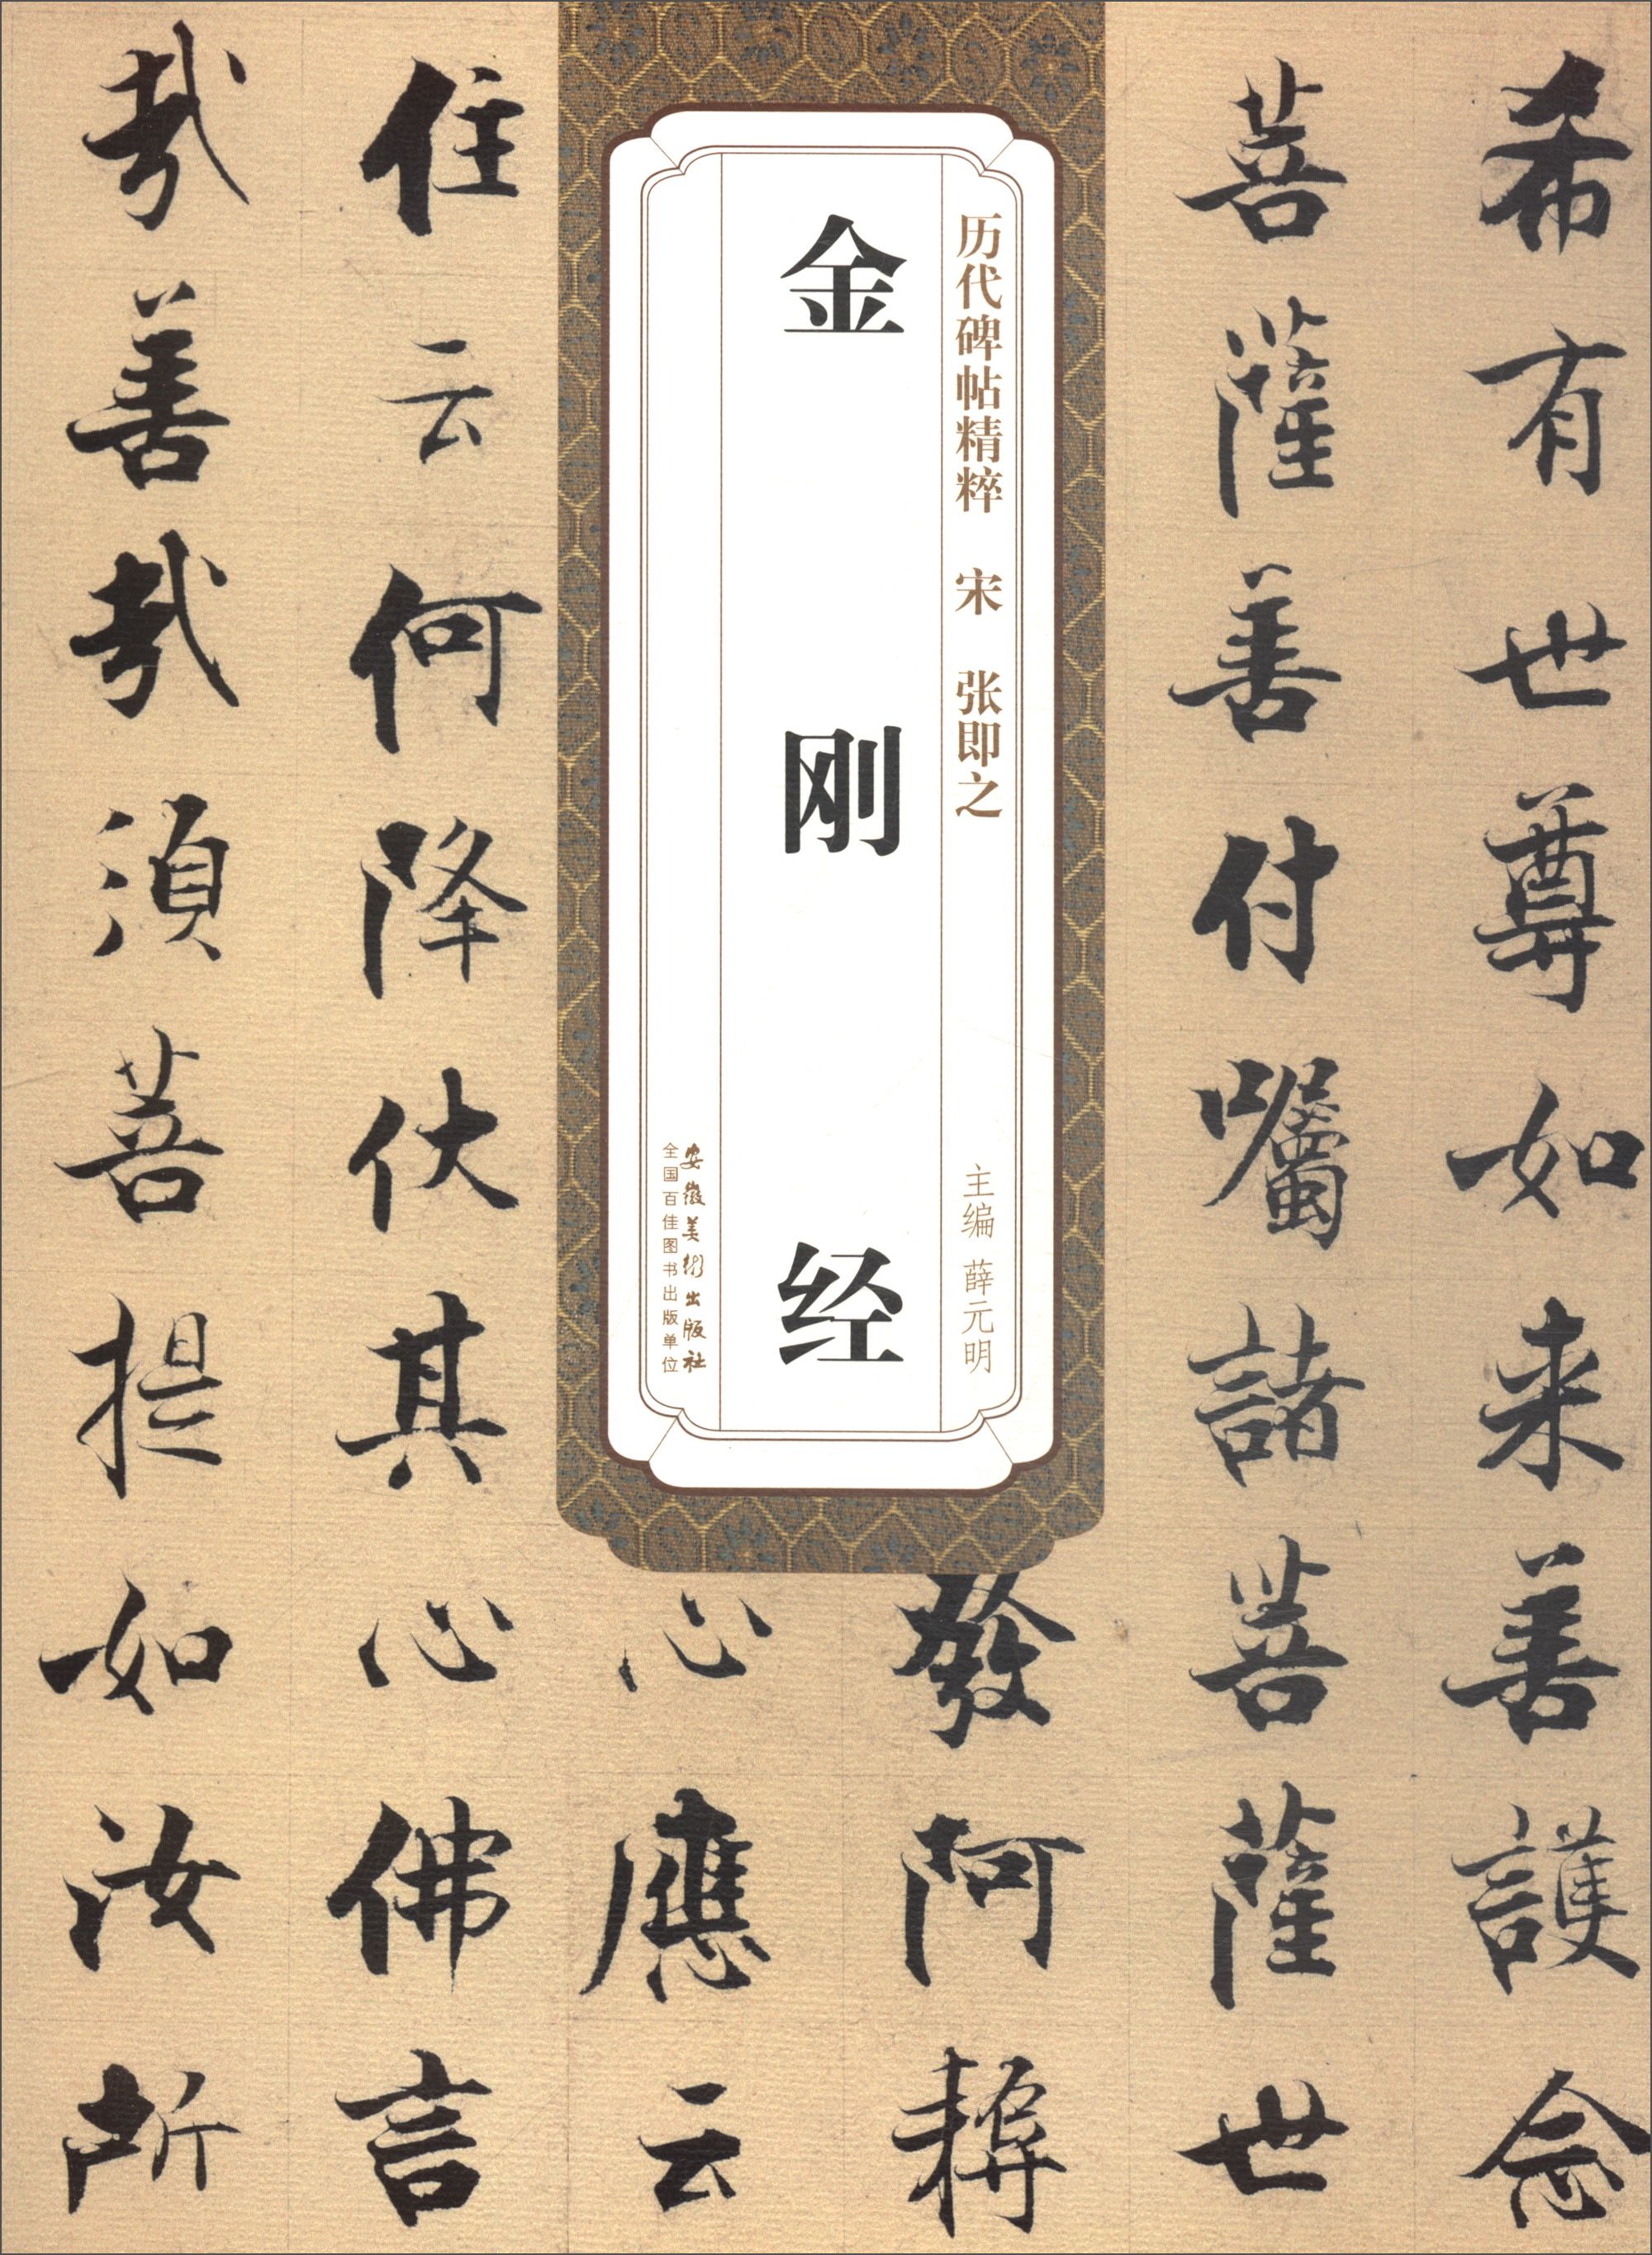 希有世尊如来善護念
菩薩善付囑諸菩薩世
發阿耨
心應云
住云何降伏其心佛言
哉善哉須菩提如汝所
历代碑帖精粹 宋 张即之
主编 薛元明
金刚经
安徽美術出版社
全国百佳图书出版单位